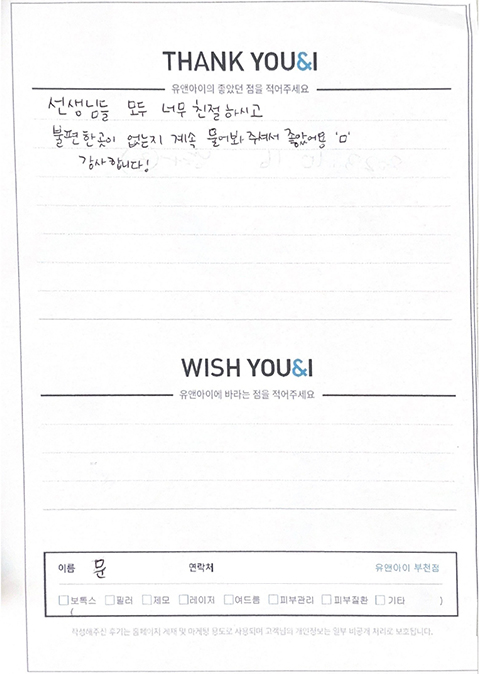 THANK YOU&I
유앤아이의 좋았던 점을 적어주세요
선생님들 모두 너무 친절하시고
불편한곳이 없는지 계속 물어봐주셔서 좋았어용 'ㅁ'
감사합니다!
WISH YOU&I
유앤아이에 바라는 점을 적어주세요
이름 문 연락처 유앤아이 부천점
□보톡스 □필러 □제모 □레이저 □여드름 □피부관리 □피부질환 □기타 ( )
작성해주신 후기는 홈페이지 게재 및 마케팅 용도로 사용되며 고객님의 개인정보는 일부 비공개 처리로 보호됩니다.